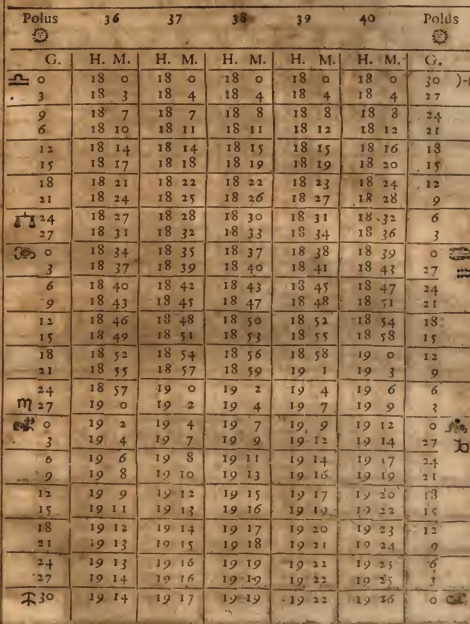 Polus 36 37 38 39 40 Polus
G. H. M. H. M. H. M. H. M. H. M. G.
♎ 0 18 0 18 0 18 0 18 0 18 0 30 ♓
3 18 3 18 4 18 4 18 4 18 4 27
9 18 7 18 7 18 8 18 8 18 8 24
6 18 10 18 11 18 11 18 12 18 12 21
12 18 14 18 14 18 15 18 15 18 16 18
15 18 17 18 18 18 19 18 19 18 20 15
18 18 21 18 22 18 22 18 23 18 24 12
21 18 24 18 25 18 26 18 27 18 28 9
24 18 27 18 28 18 30 18 31 18 32 6
27 18 31 18 32 18 33 18 34 18 36 3
0 18 34 18 35 18 37 18 38 18 39 0
3 18 37 18 39 18 40 18 41 18 43 27 ♒
6 18 40 18 42 18 43 18 45 18 47 24
9 18 43 18 45 18 47 18 48 18 51 21
12 18 46 18 48 18 50 18 52 18 54 18
15 18 49 18 51 18 53 18 55 18 58 15
18 18 52 18 54 18 56 18 58 19 0 12
21 18 55 18 57 18 59 19 1 19 3 9
24 18 57 19 0 19 2 19 4 19 6 6
♏ 27 19 0 19 2 19 4 19 7 19 9 3
0 19 2 19 4 19 7 19 9 19 12 0
3 19 4 19 7 19 9 19 12 19 14 27 ♑
6 19 6 19 8 19 11 19 14 19 17 24
9 19 8 19 10 19 13 19 16 19 19 21
12 19 9 19 12 19 15 19 17 19 20 18
15 19 11 19 13 19 16 19 19 19 22 15
18 19 12 19 14 19 17 19 20 19 23 12
21 19 13 19 15 19 18 19 21 19 24 9
24 19 13 19 16 19 19 19 22 19 25 6
27 19 14 19 16 19 19 19 22 19 25 3
30 19 14 19 17 19 19 19 22 19 26 0